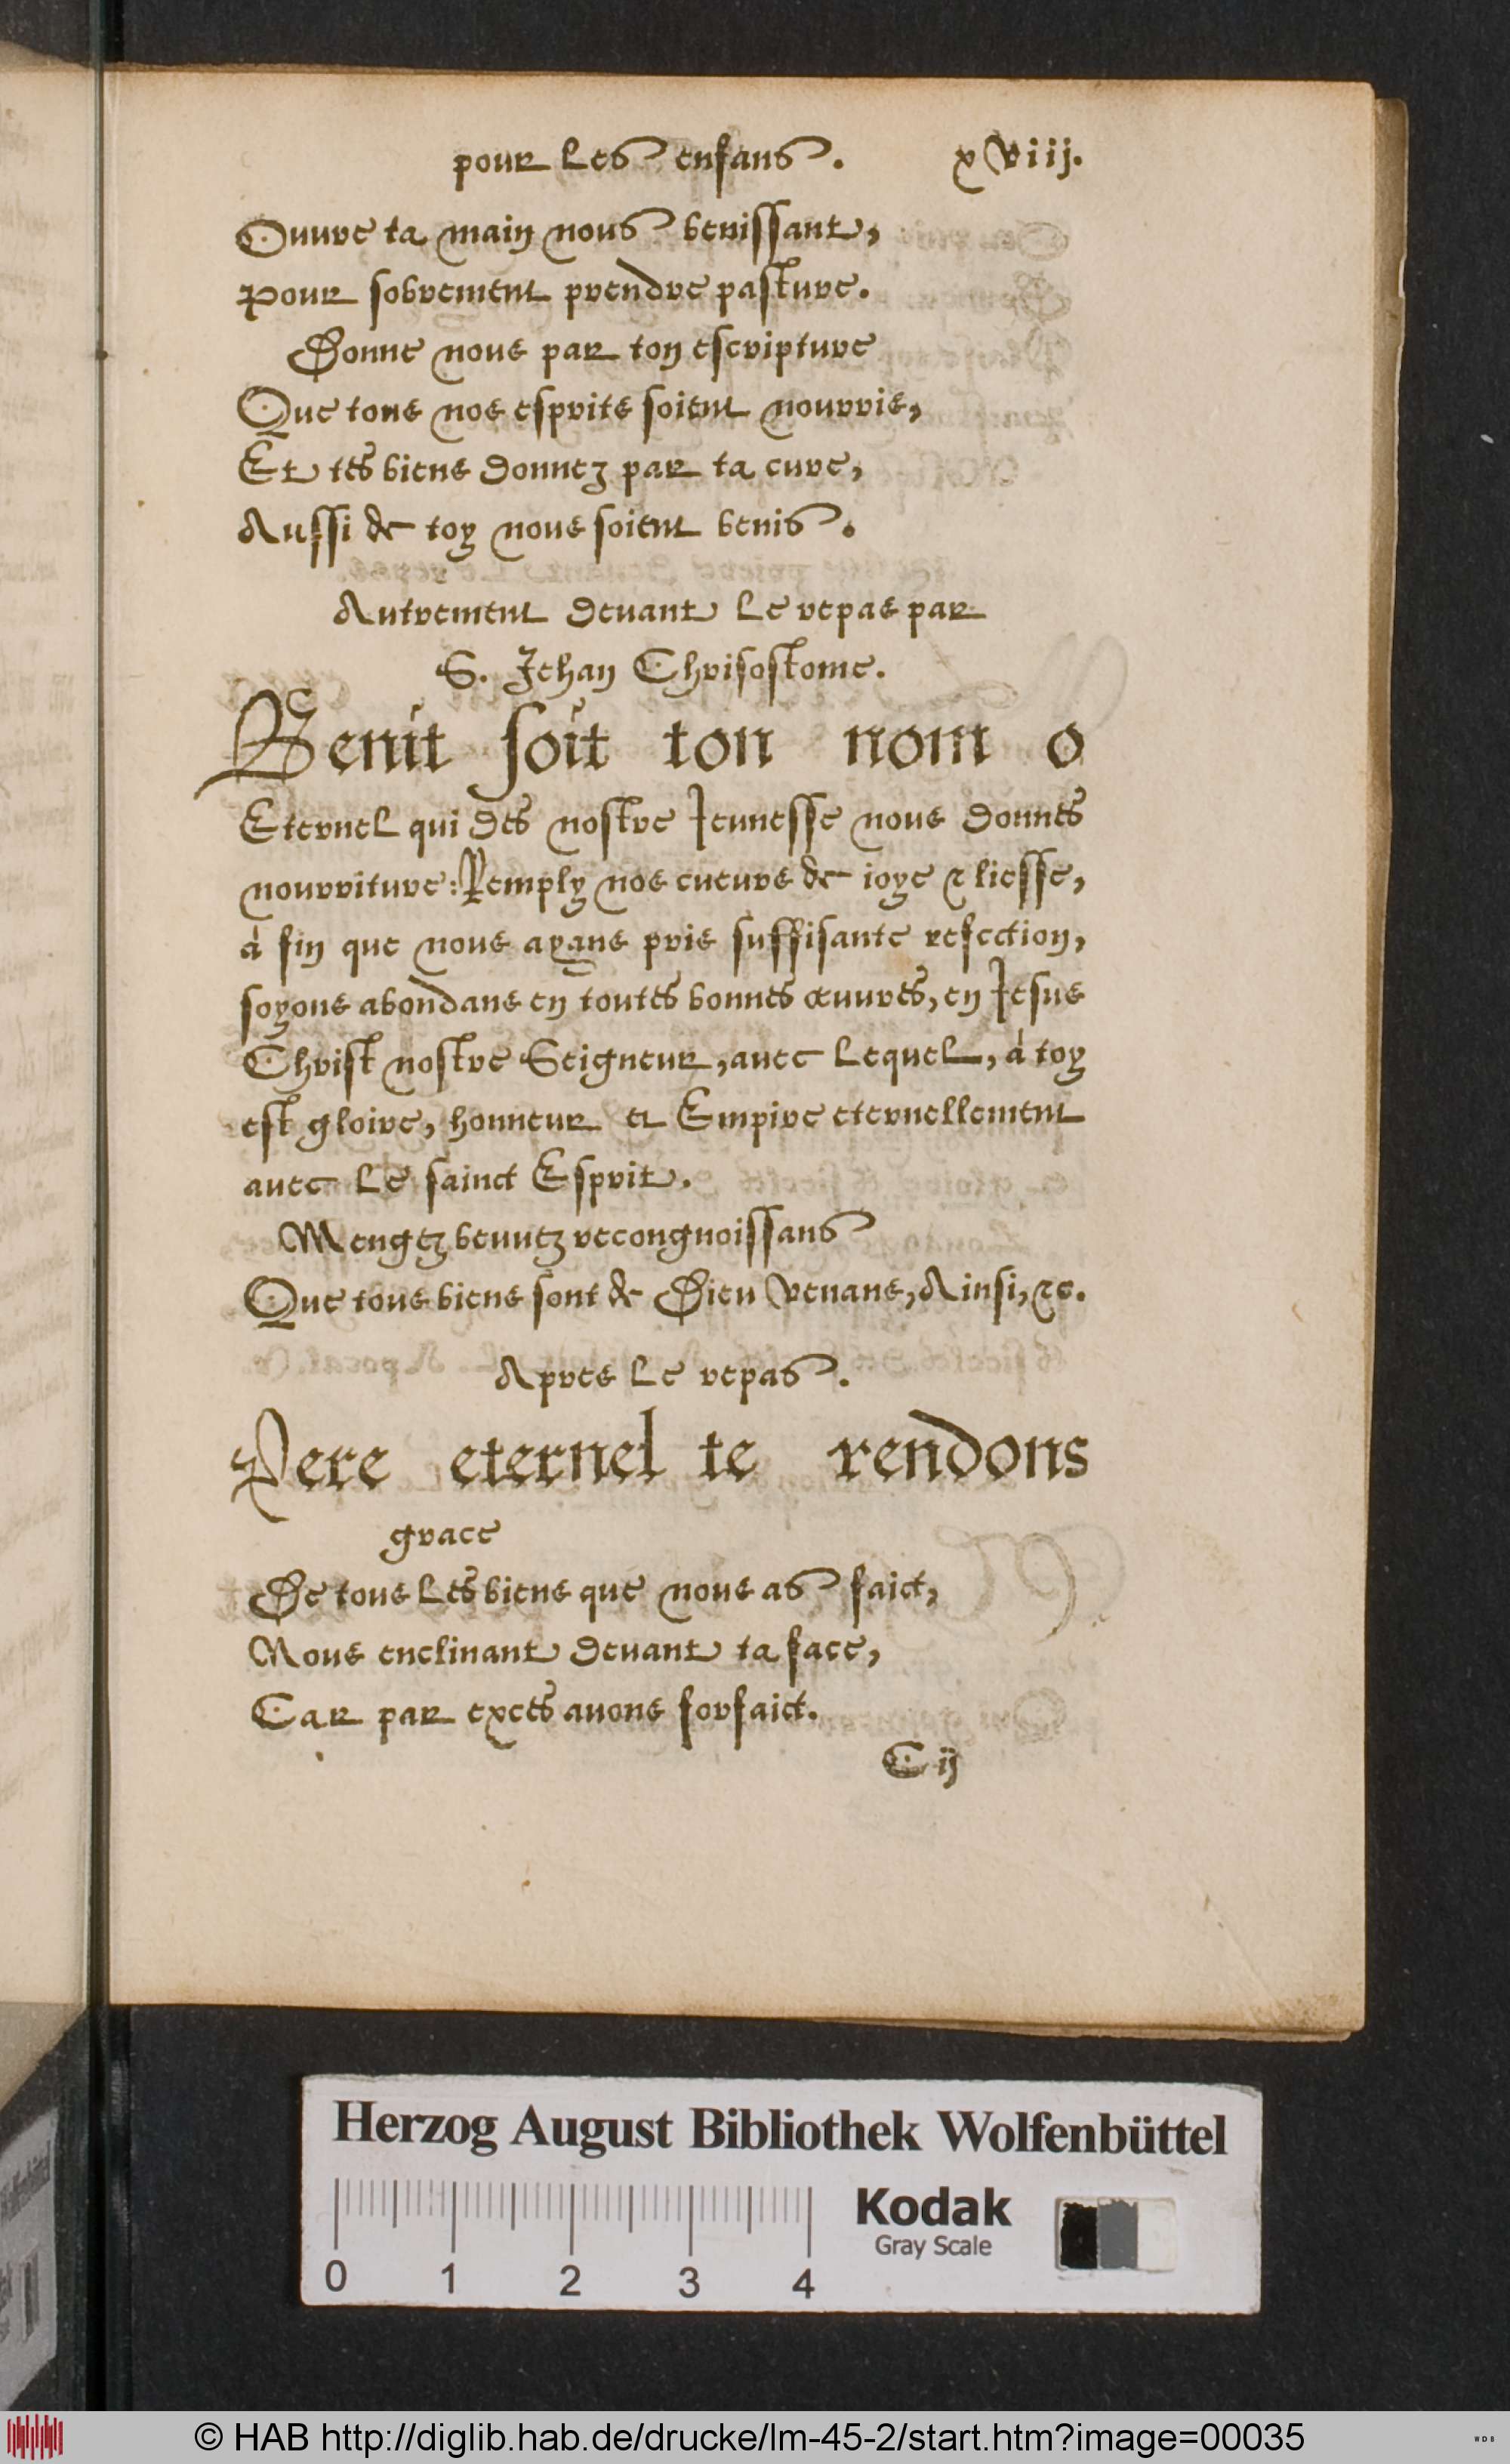 pour les enfans. xviij.
Ouure ta main nous benissant,
Pour sobrement prendre pasture.
Donne nous par ton escripture
Que tous nos esprits soient nourris,
Et tes biens donnez par ta cure,
Aussi de toy nous soient benis.
Autrement deuant le repas par
S. Jehan Chrisostome.
Benit soit ton nom o
Eternel qui des nostre Jeunesse nous donnes
nourriture: Remply nos cueurs de ioye & liesse,
à fin que nous ayans pris suffisante refection,
soyons abondans en toutes bonnes œuures, en Jesus
Christ nostre Seigneur, auec lequel, à toy
est gloire, honneur et Empire eternellement
auec le sainct Esprit.
Mengez beuuez recongnoissans
Que tous biens sont de Dieu venans, Ainsi, &c.
Apres le repas.
Pere eternel te rendons
grace
De tous les biens que nous as faict,
Nous enclinant deuant ta face,
Car par exces auons forfaict.
C ij
Herzog August Bibliothek Wolfenbüttel
Kodak
Gray Scale
0 1 2 3 4
© HAB http://diglib.hab.de/drucke/lm-45-2/start.htm?image=00035